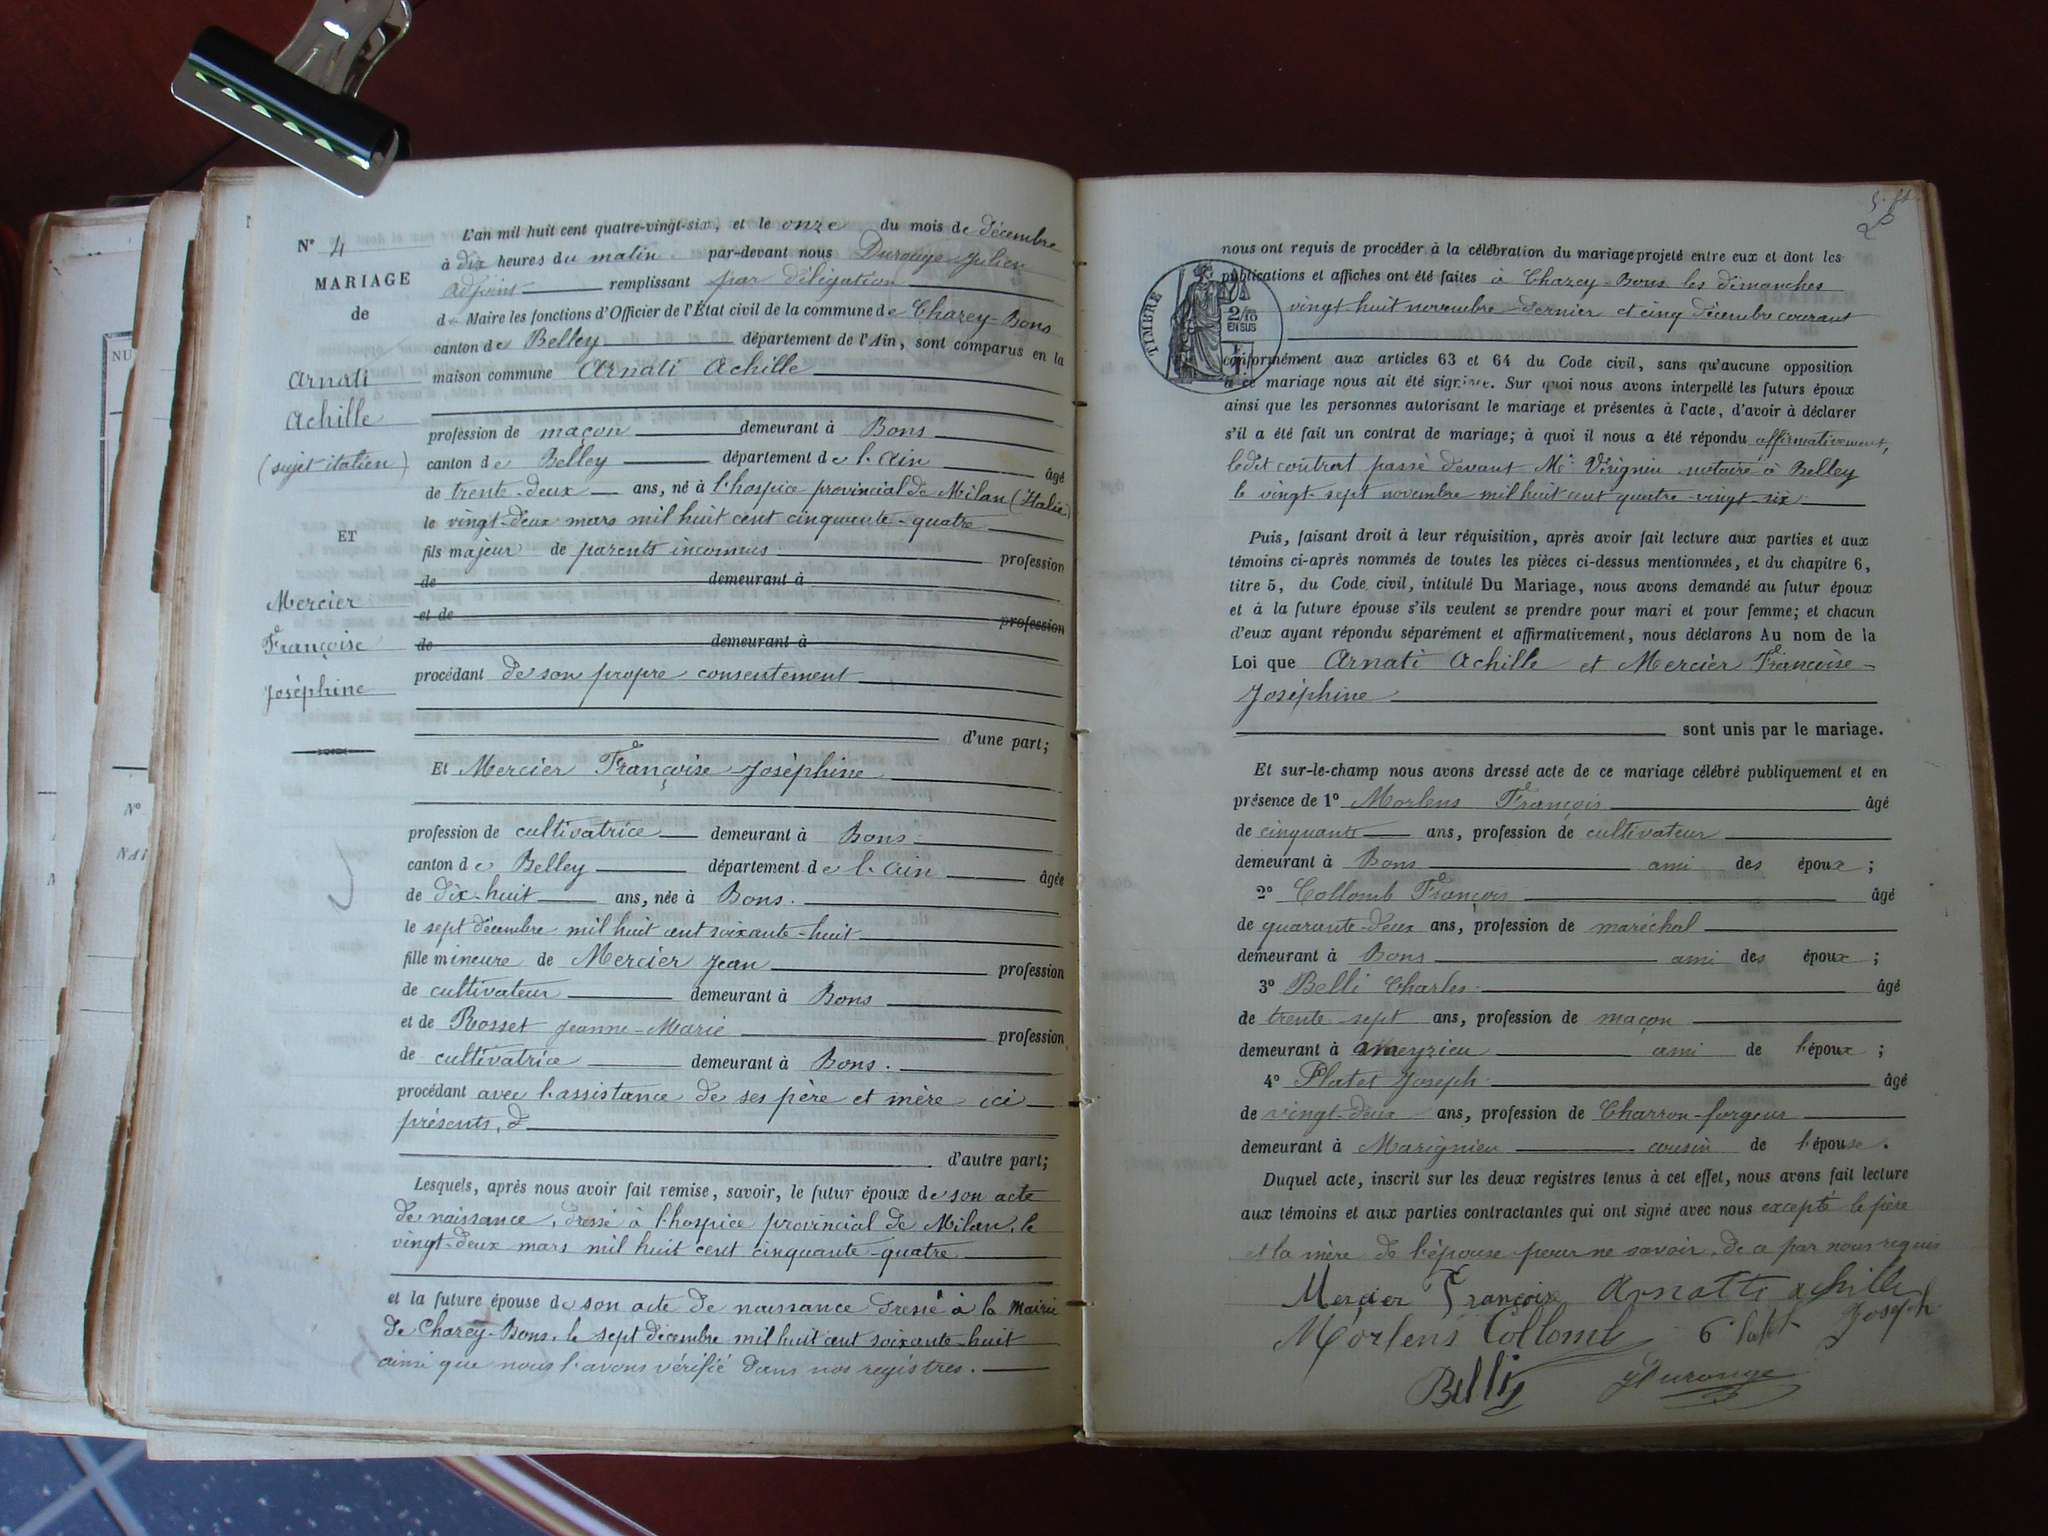 N° 4
MARIAGE
de
Arnati
Achille
(sujet italien)
ET
Mercier
Françoise
Joséphine
L'an mil huit cent quatre-vingt-six, et le onze du mois de décembre
à dix heures du matin par-devant nous Durouge Julien
adjoint remplissant par délégation
de Maire les fonctions d'Officier de l'État civil de la commune de Charey-Bons
canton de Belley département de l'Ain, sont comparus en la
maison commune Arnati Achille
profession de maçon demeurant à Bons
canton de Belley département de l'Ain âgé
de trente-deux ans, né à l'hospice provincial de Milan (Italie)
le vingt-deux mars mil huit cent cinquante-quatre
fils majeur de parents inconnus profession
de demeurant à
et de profession
de demeurant à
procédant de son propre consentement
d'une part;
Et Mercier Françoise Joséphine
profession de cultivatrice demeurant à Bons
canton de Belley département de l'Ain âgée
de dix-huit ans, née à Bons.
le sept décembre mil huit cent soixante-huit
fille mineure de Mercier Jean profession
de cultivateur demeurant à Bons
et de Rosset Jeanne-Marie profession
de cultivatrice demeurant à Bons.
procédant avec l'assistance de ses père et mère ici
présents, d
d'autre part;
Lesquels, après nous avoir fait remise, savoir, le futur époux de son acte
de naissance, dressé à l'hospice provincial de Milan, le
vingt-deux mars mil huit cent cinquante-quatre
et la future épouse de son acte de naissance dressé à la Mairie
de Charey-Bons, le sept décembre mil huit cent soixante-huit
ainsi que nous l'avons vérifié dans nos registres.
nous ont requis de procéder à la célébration du mariage projeté entre eux et dont les
publications et affiches ont été faites à Charey-Bons les dimanches
vingt huit novembre dernier et cinq décembre courant
TIMBRE
2/10
EN SUS
conformément aux articles 63 et 64 du Code civil, sans qu'aucune opposition
à ce mariage nous ait été signifiée. Sur quoi nous avons interpellé les futurs époux
ainsi que les personnes autorisant le mariage et présentes à l'acte, d'avoir à déclarer
s'il a été fait un contrat de mariage; à quoi il nous a été répondu affirmativement,
ledit contrat passé devant Me. Virignin notaire à Belley
le vingt-sept novembre mil huit cent quatre-vingt six.
Puis, faisant droit à leur réquisition, après avoir fait lecture aux parties et aux
témoins ci-après nommés de toutes les pièces ci-dessus mentionnées, et du chapitre 6,
titre 5, du Code civil, intitulé Du Mariage, nous avons demandé au futur époux
et à la future épouse s'ils veulent se prendre pour mari et pour femme; et chacun
d'eux ayant répondu séparément et affirmativement, nous déclarons Au nom de la
Loi que Arnati Achille et Mercier Françoise
Joséphine
sont unis par le mariage.
Et sur-le-champ nous avons dressé acte de ce mariage célébré publiquement et en
présence de 1° Morlens François âgé
de cinquante ans, profession de cultivateur
demeurant à Bons ami des époux;
2° Collomb François âgé
de quarante-deux ans, profession de maréchal
demeurant à Bons ami des époux;
3° Belli Charles. âgé
de trente sept ans, profession de maçon
demeurant à Ameyzieu ami de l'époux;
4° Platet Joseph. âgé
de vingt-deux ans, profession de Charron-forgeur
demeurant à Marignieu cousin de l'épouse.
Duquel acte, inscrit sur les deux registres tenus à cet effet, nous avons fait lecture
aux témoins et aux parties contractantes qui ont signé avec nous excepté le père
et la mère de l'épouse pour ne savoir, de ce par nous requis
Mercier Françoise Arnatti Achille
Morlens Collomb Joseph
Belli Durouge